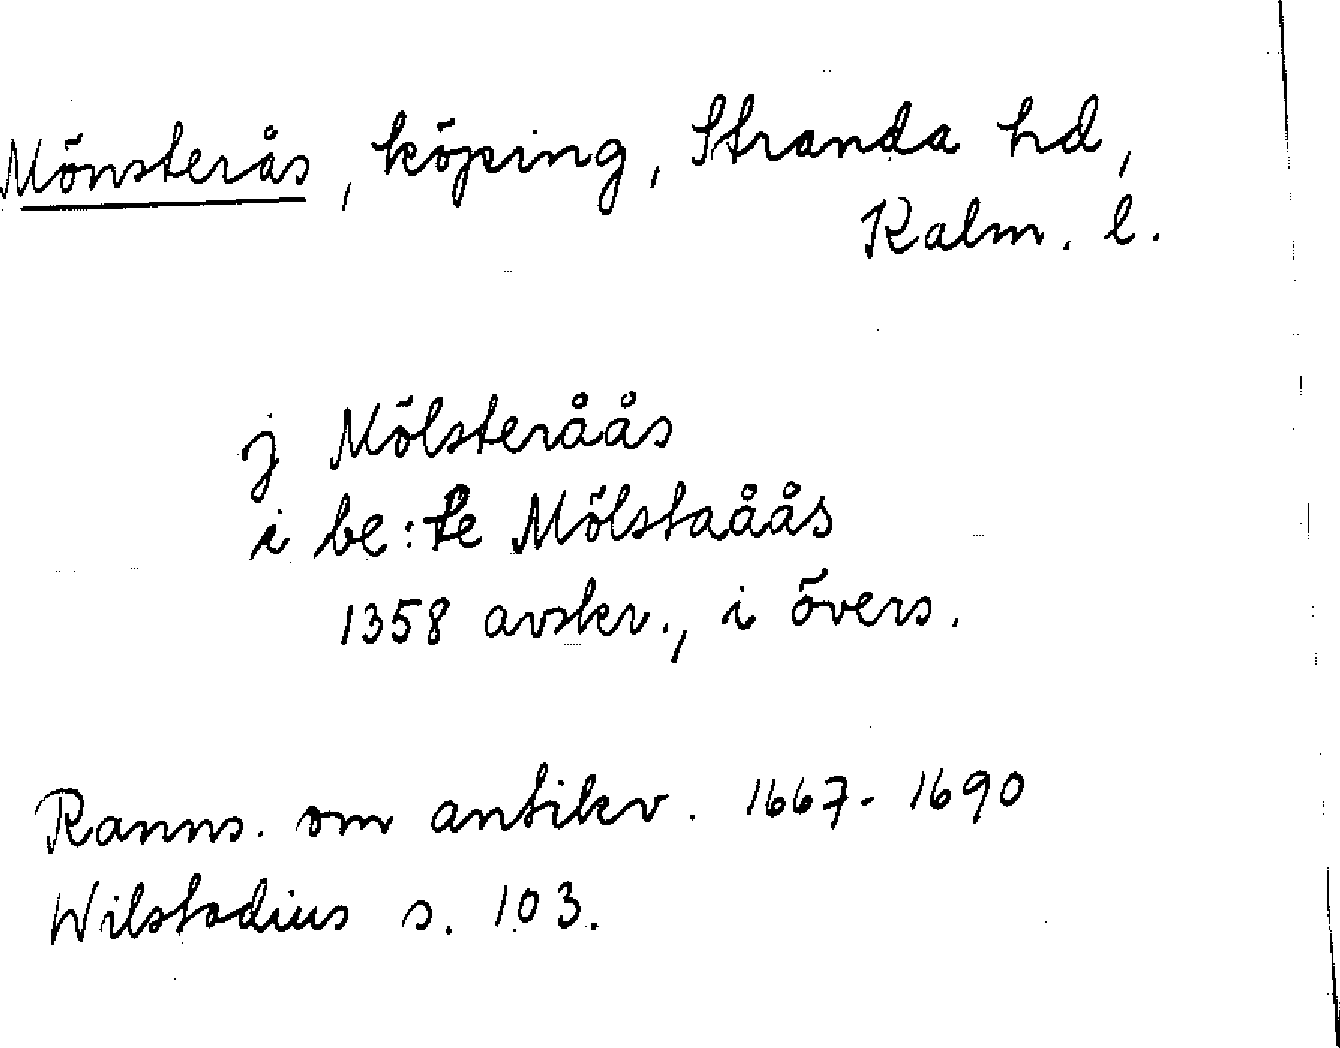 Mönsterås, köping, Stranda hd,
Kalm. l.
j Mölsteråås
i be:te Mölstaåås
1358 avskr., i övers.
Ranns. om antikv. 1667-1690
Wilstadius s. 103.